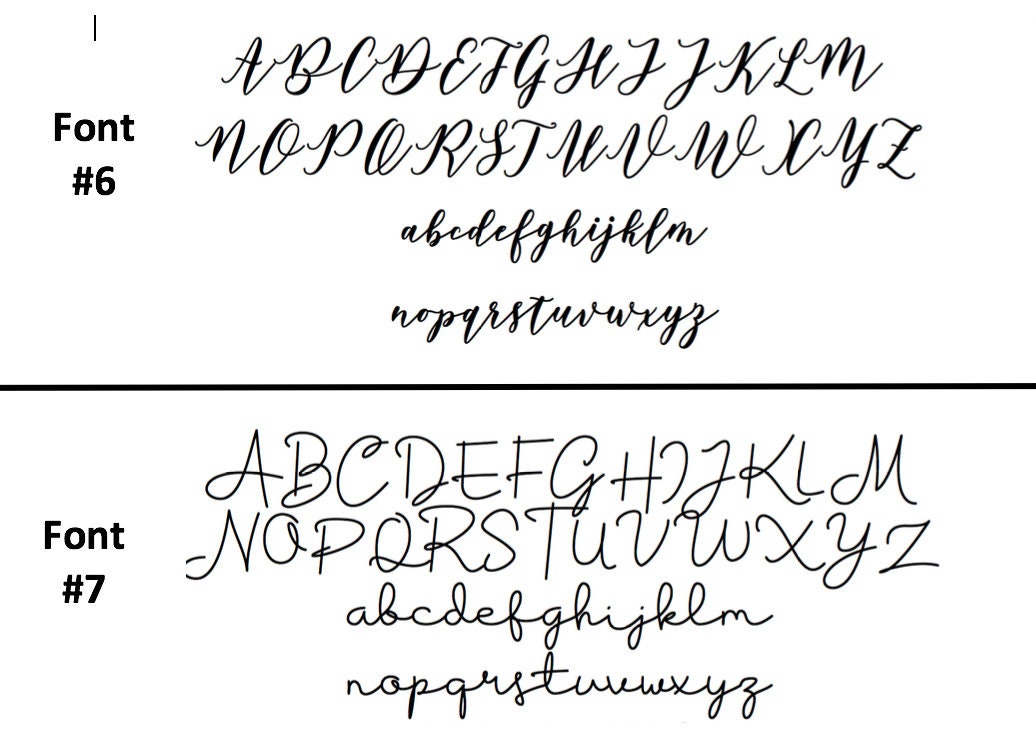 Font
#6
ABCDEFGHIJKLM
NOPQRSTUVWXYZ
abcdefghijklm
nopqrstuvwxyz
Font
#7
ABCDEFGHIJKLM
NOPQRSTUVWXYZ
abcdefghijklm
nopqrstuvwxyz